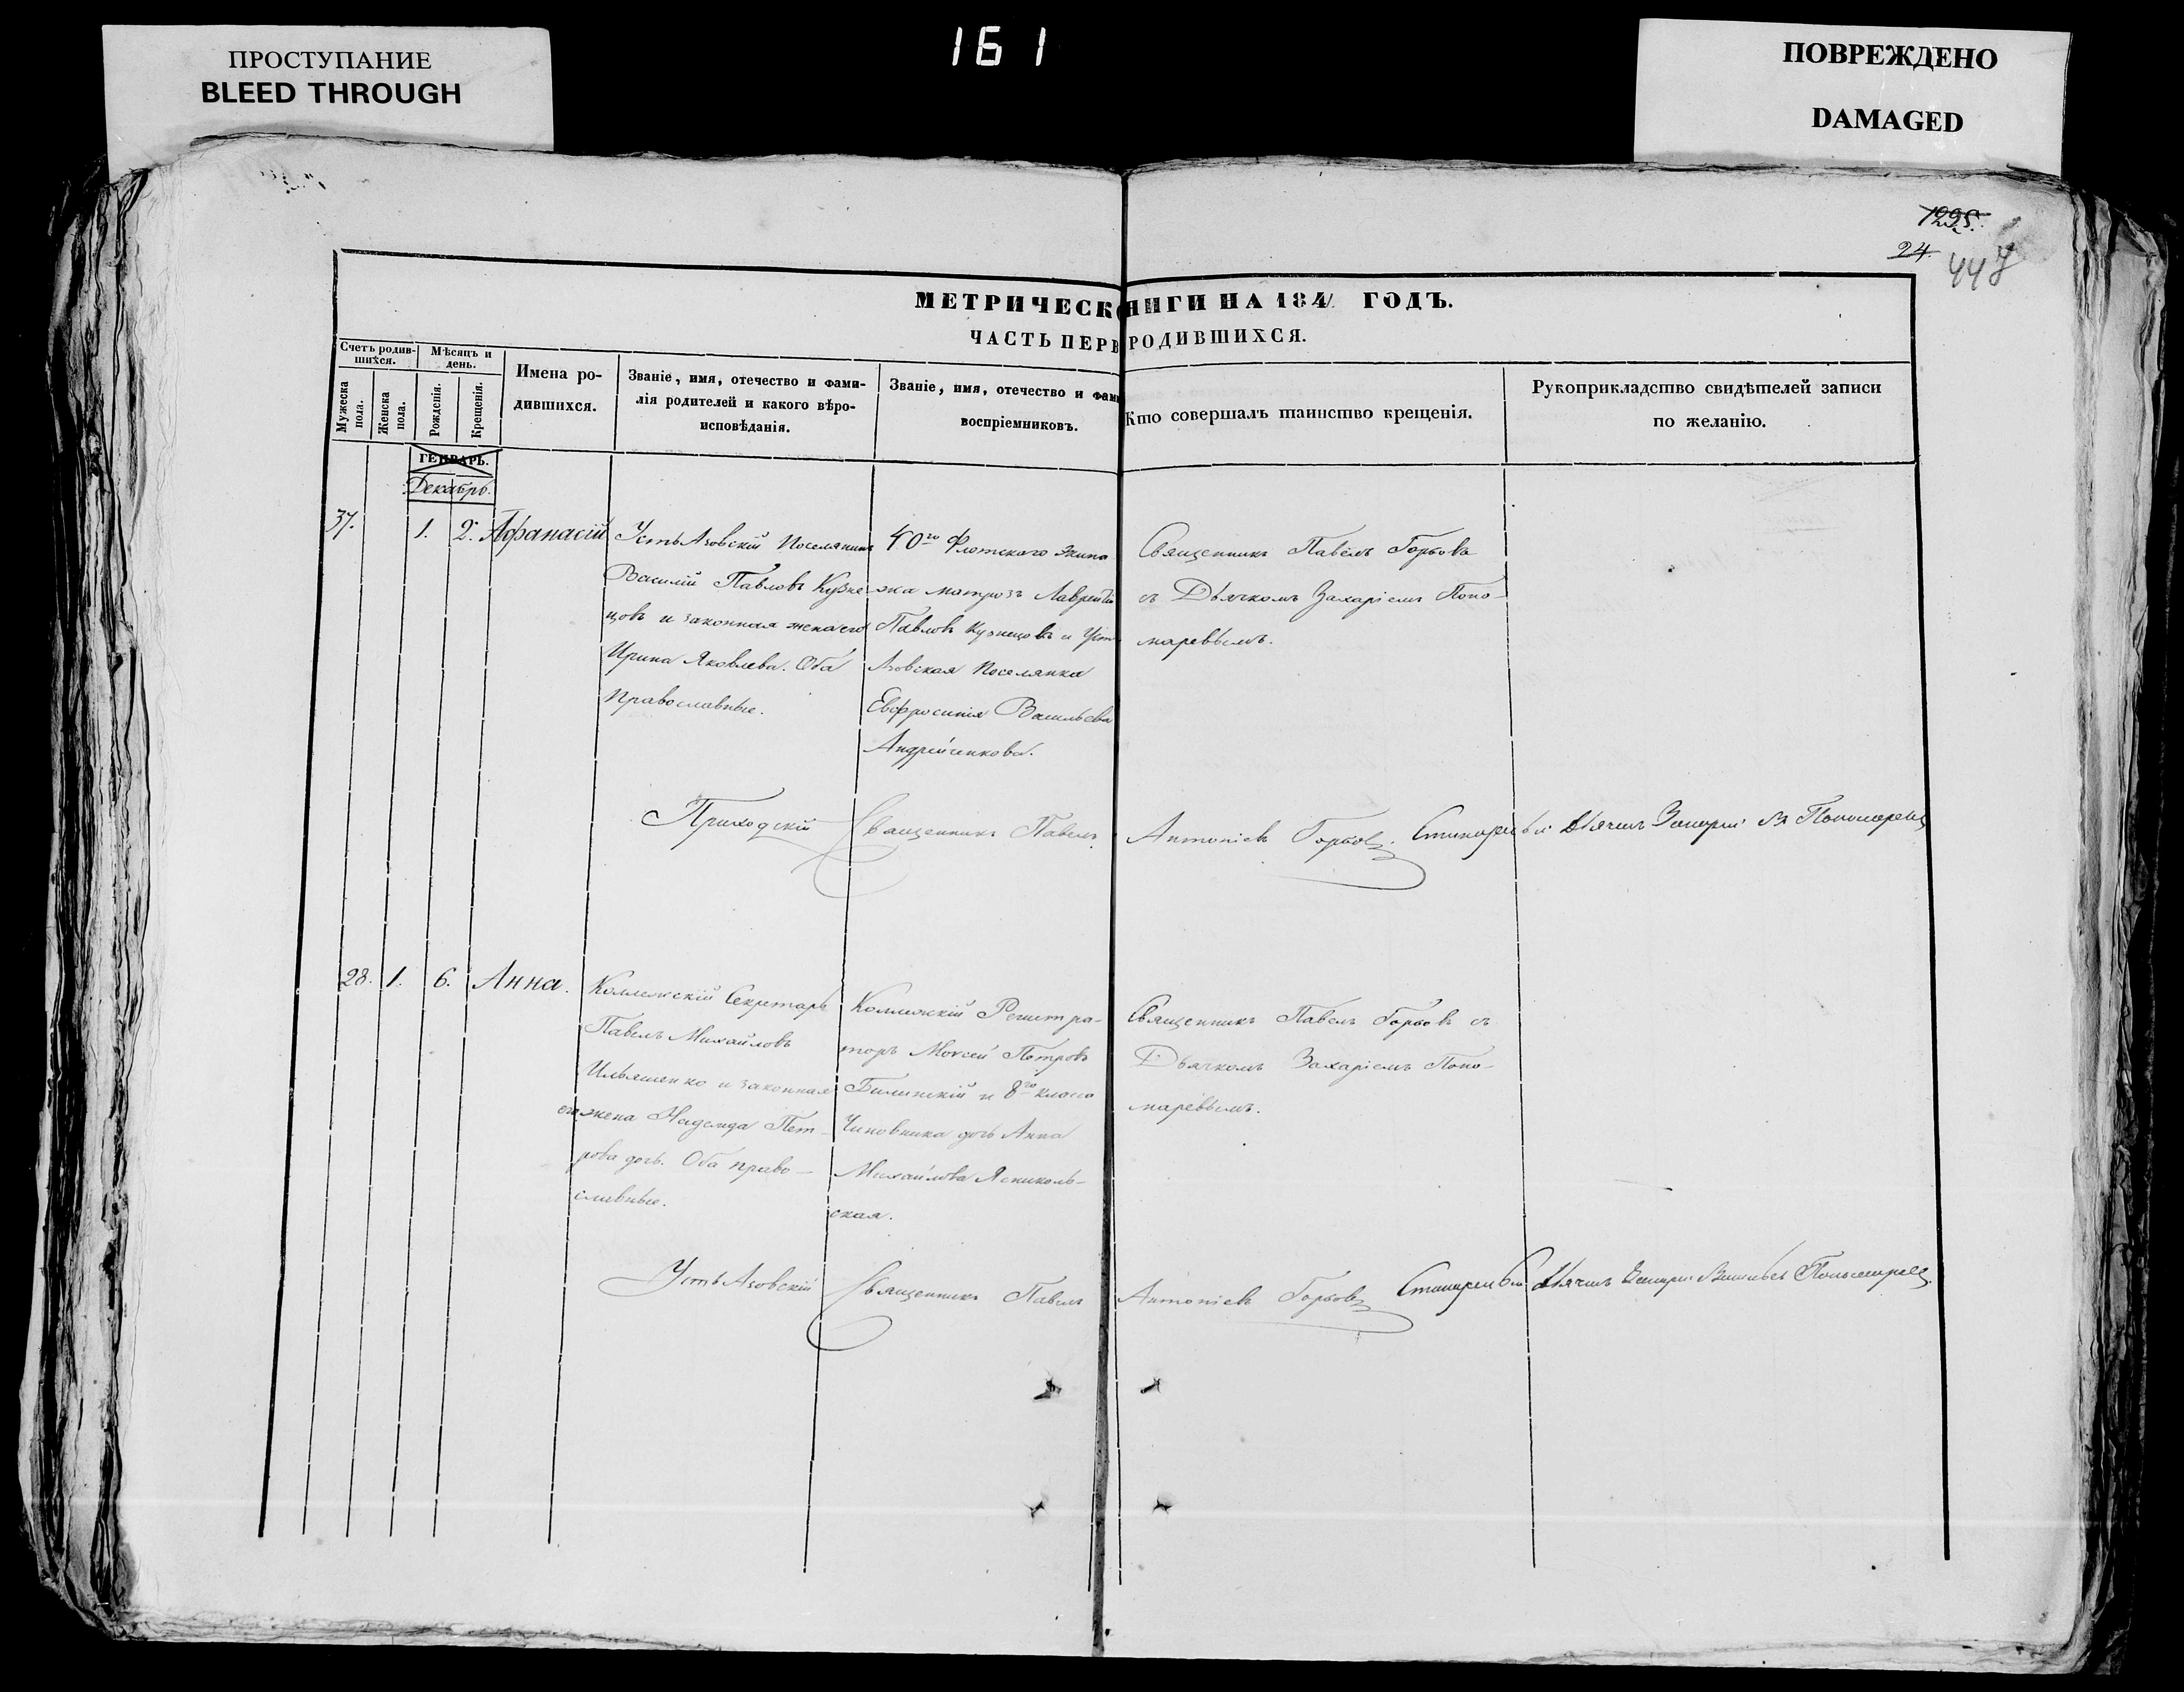 ПРОСТУПАНИЕ
BLEED THROUGH
161
ПОВРЕЖДЕНО
DAMAGED
1295.
24.
447
МЕТРИЧЕСКО НИГИ НА 184 ГОДЪ.
ЧАСТЬ ПЕРВ РОДИВШИХСЯ.
Счетъ родив-
шихся.
Мужеска
пола.
Женска
пола.
Мѣсяцъ и
день.
Рожденія.
Крещенія.
Имена ро-
дившихся.
Званіе, имя, отечество и фами-
лія родителей и какого вѣро-
исповѣданія.
Званіе, имя, отечество и фами
воспріемниковъ.
Кто совершалъ таинство крещенія.
Рукоприкладство свидѣтелей записи
по желанію.
ГЕНВАРЬ.
Декабрь.
37.
1.
2.
Афанасій
Усть Азовскій Поселянинъ
Василій Павловъ Кузне-
цовъ и законная жена его
Ирина Яковлева. Оба
Православные.
40го Флотскаго экипа
жа матрозъ Лаврентій
Павловъ Кузнецовъ и Усть
Азовская Поселянка
Евфросинія Васильева
Андрейченкова.
Священникъ Павелъ Горбовъ
съ Дьячкомъ Захаріемъ Поно-
маревымъ.
Приходскій Священникъ Павелъ Антоніевъ Горбовъ. Дьячекъ Пономаревъ
28.
1.
6.
Анна.
Коллежскій Секретарь
Павелъ Михайловъ
Ильяшенко и законная
его жена Надежда Пет-
рова дочь. Оба право-
славные.
Коллежскій Регистра-
торъ Моѵсей Петровъ
Билинскій и 8го класса
Чиновника дочь Анна
Михайлова Яскуль-
ская.
Священникъ Павелъ Горбовъ съ
Дьячкомъ Захаріемъ Поно-
маревымъ.
Усть Азовскій Священникъ Павелъ Антоніевъ Горбовъ Дьячекъ Пономаревъ